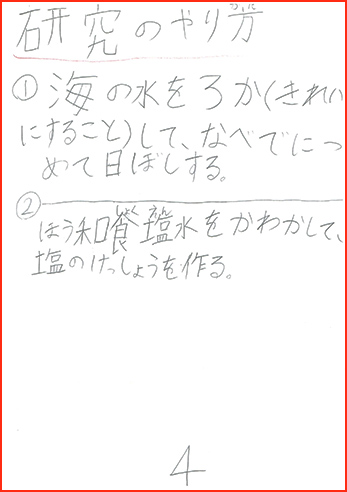 研究のやり方
① 海の水をろか(きれい
にすること)して、なべでにつ
めて日ぼしする。
②
ほう和食塩水をかわかして、
塩のけっしょうを作る。
4